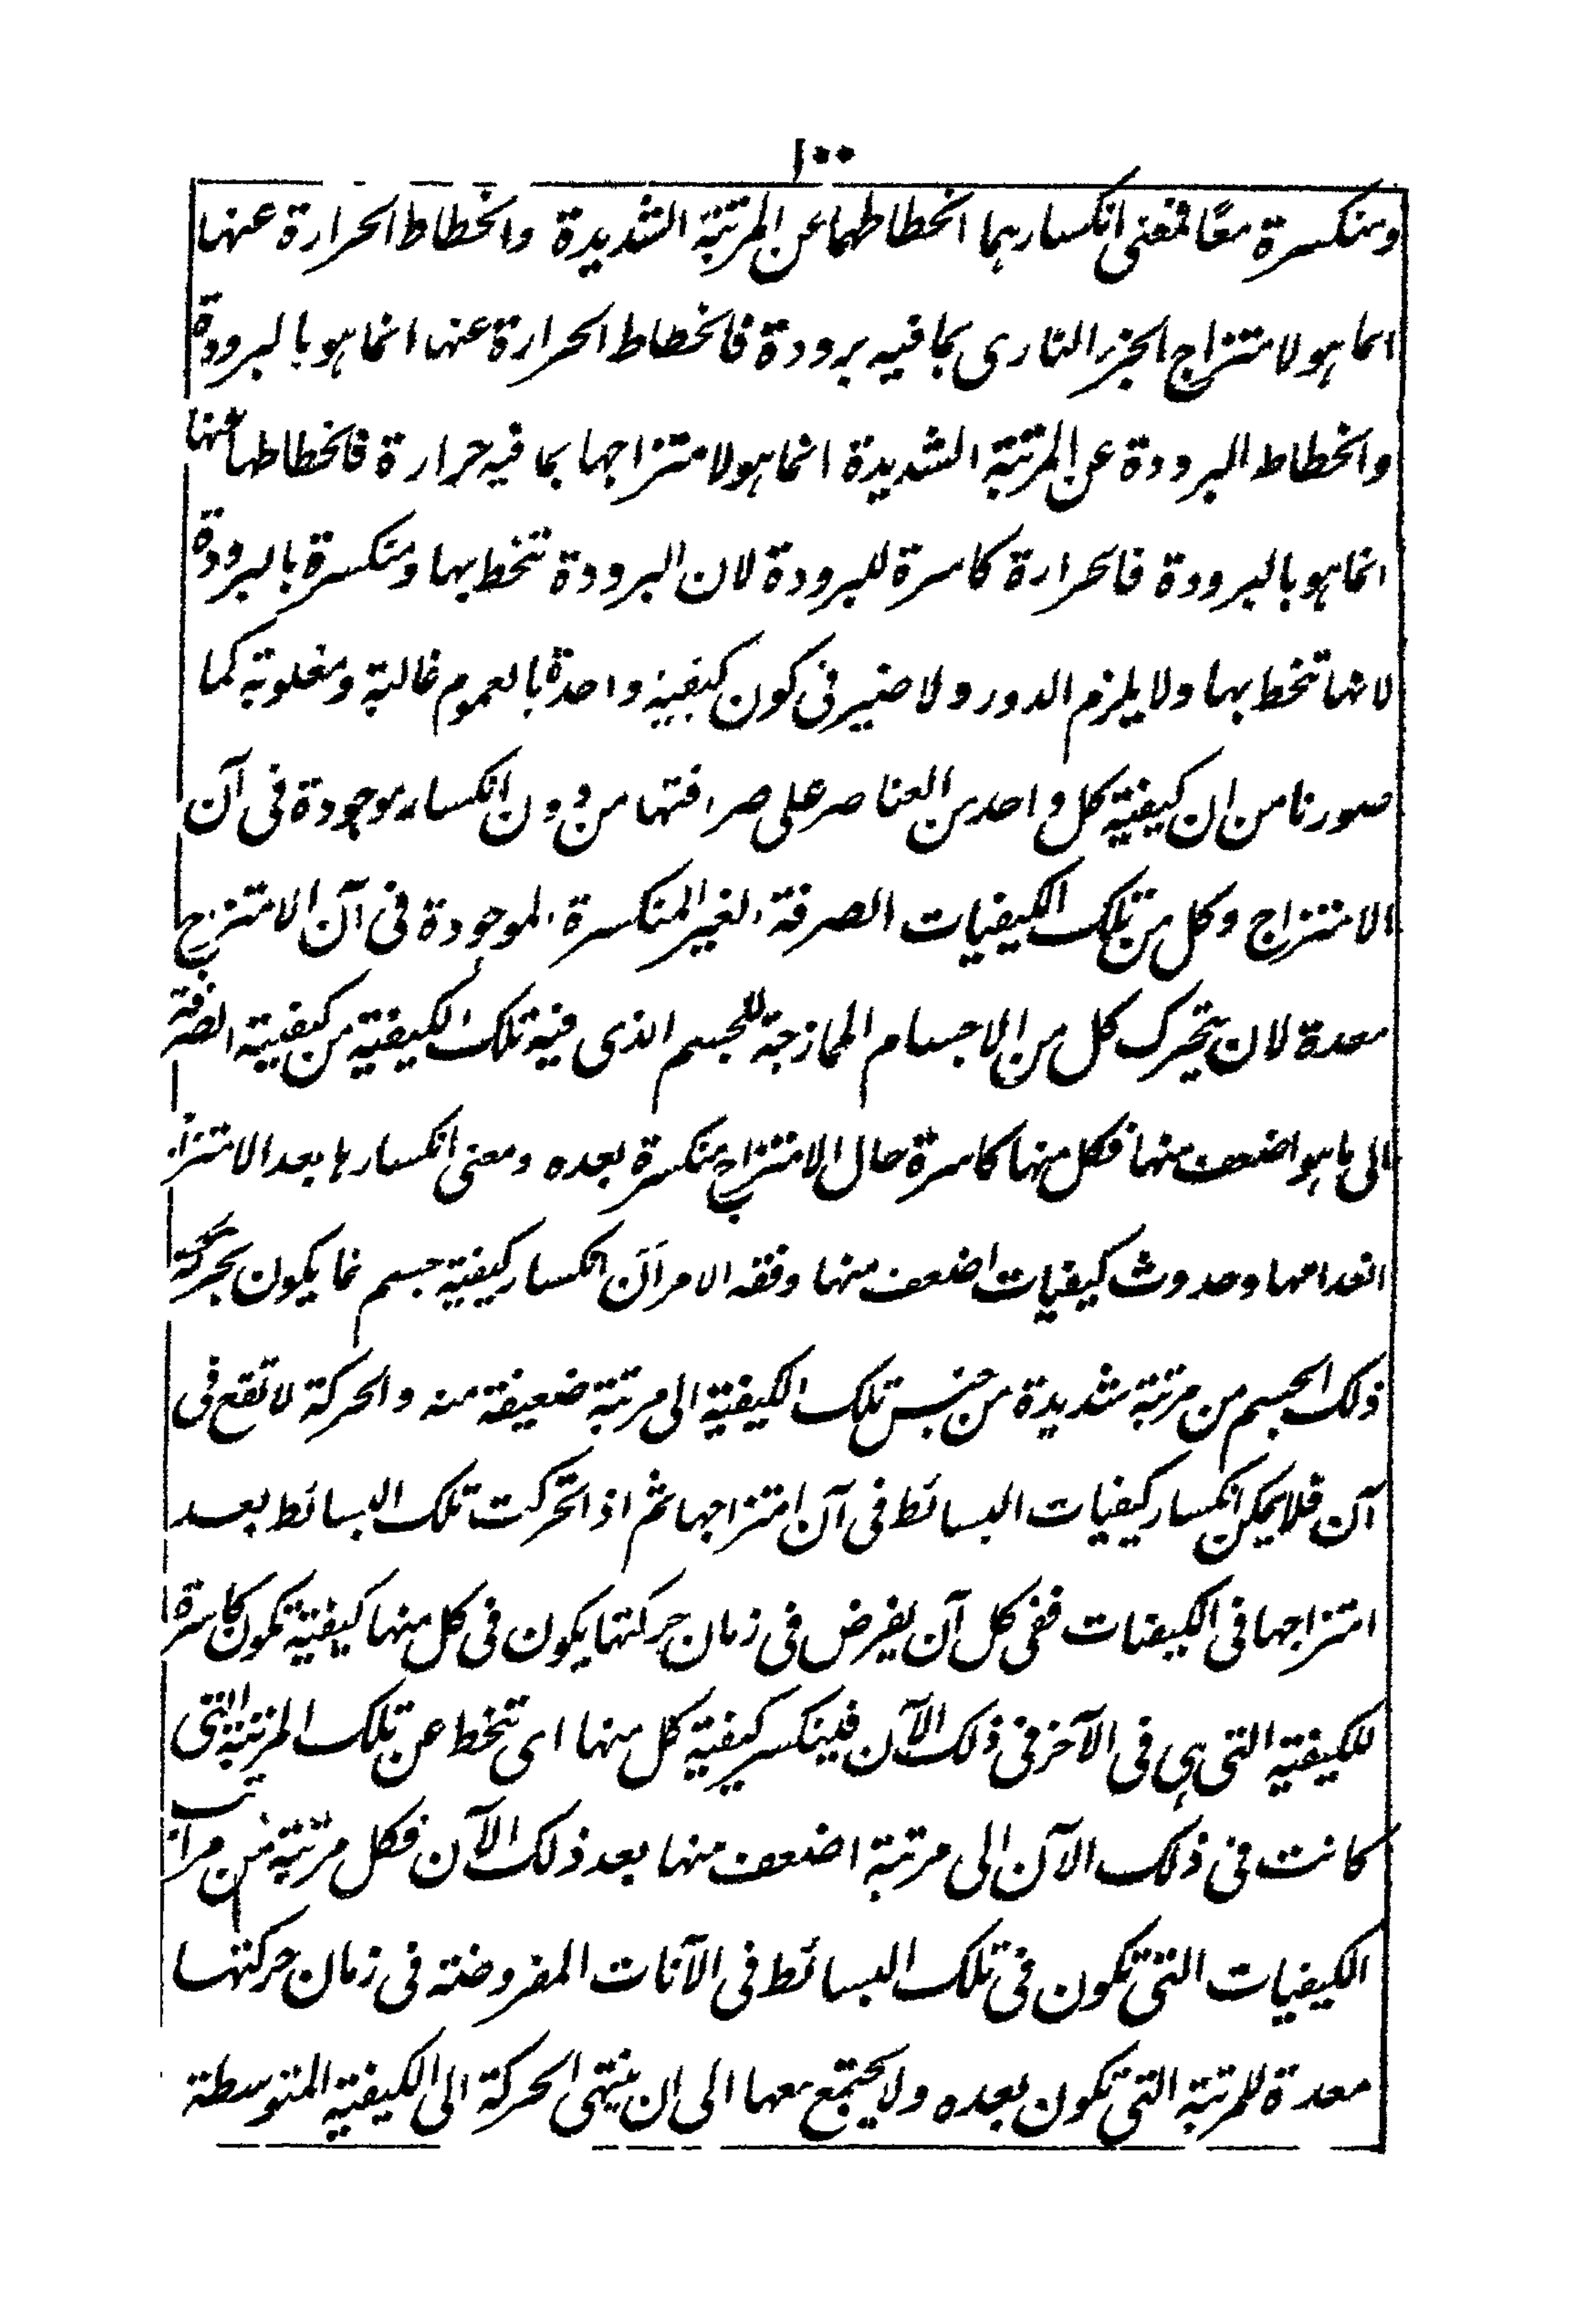 ١٠٠
ومنكسرة معًا فمعنى انكسارهما انحطاطهما عن المرتبة الشديدة وانحطاط الحرارة عنها
انما هو لامتزاج الجزء النارى بما فيه برودة فانحطاط الحرارة عنها انما هو بالبرودة
وانحطاط البرودة عن المرتبة الشديدة انما هو لامتزاجها بما فيه حرارة فانحطاطها عنها
انما هو بالبرودة فالحرارة كاسرة للبرودة لان البرودة تنحط بها ومنكسرة بالبرودة
لانها تنحط بها ولا يلزم الدور ولا ضير فى كون كيفية واحدة بالعموم غالبة ومغلوبة كما
صورنا من ان كيفية كل واحد من العناصر على صرافتها من دون انكسار موجودة فى آن
الامتزاج وكل من تلك الكيفيات الصرفة الغير المنكسرة الموجودة فى آن الامتزاج
معدة لان يتحرك كل من الاجسام الممازجة للجسم الذى فيه تلك الكيفية من كيفية الصرفة
الى ما هو اضعف منها فكل منها كاسرة حال الامتزاج منكسرة بعده ومعنى انكسارها بعد الامتزاج
انعدامها وحدوث كيفيات اضعف منها وفقه الامر اَنَّ انكسار كيفية جسم انما يكون بحركة
ذلك الجسم من مرتبة شديدة من جنس تلك الكيفية الى مرتبة ضعيفة منه والحركة لا تقع فى
آن فلا يمكن انكسار كيفيات البسائط فى آن امتزاجها ثم اذا تحركت تلك البسائط بعد
امتزاجها فى الكيفيات ففى كل آن يفرض فى زمان حركتها يكون فى كل منها كيفية تكون كاسرة
للكيفية التى هى فى الآخر فى ذلك الآن فينكسر كيفية كل منها اى تنحط عن تلك المرتبة التى
كانت فى ذلك الآن الى مرتبة اضعف منها بعد ذلك الآن فكل مرتبة من مراتب
الكيفيات التى تكون فى تلك البسائط فى الآنات المفروضة فى زمان حركتها
معدة للمرتبة التى تكون بعده ولا يجتمع معها الى ان ينتهى الحركة الى الكيفية المتوسطة